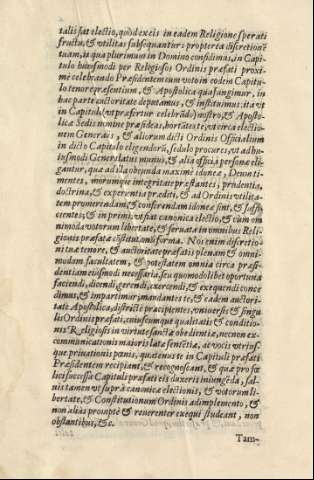 talis fiat electio, quòd ex eis in eadem Religione sperati
fructus, & vtilitas subsequantur: propterea discretionē
tuam, in qua plurimum in Domino confidimus, in Capi-
tulo huiusmodi per Religiosos Ordinis præfati proxi-
mè celebrando Præsidentem cum voto in eodem Capitu-
lo tenore præsentium, & Apostolica qua fungimur, in
hac parte auctoritate deputamus, & instituimus: ita vt
in Capitulo (vt præfertur celebrādo) nostro, & Aposto-
licæ Sedis nomine præsideas, hortâtes te, vt circa electio-
nem Generalis, & aliorum dicti Ordinis Officialium
in dicto Capitulo eligendorū, sedulo procures, vt ad hu-
iusmodi Generalatus munus, & alia officia personæ eli-
gantur, quæ ad illa obeunda maximè idoneæ, Deum ti-
mentes, morumque integritate præstantes, prudentia,
doctrina, & experientia præditi, & ad Ordinis vtilita-
tem promouēdam, & conferendam idoneæ sint, & suffi-
cientes, & in primis vt fiat canonica electio, & cum om
nimoda votorum libertate, & seruata in omnibus Reli-
gionis præfatæ cōstitutionū forma. Nos enim discretio-
ni tuæ tenore, & auctoritate præfatis plenam & omni-
modam facultatem, & potestatem omnia circa præsi-
dentiam eiusmodi necessaria, seu quomodolibet oportuna
faciendi, dicendi, gerendi, exercendi, & exequendi conce
dimus, & impartimur, mandantes te, & eadem auctori-
tate Apostolica, districtè præcipientes, vniuersis & singu-
lis Ordinis præfati, cuiuscumque qualitatis & conditio-
nis Religiosis in virtute sanctæ obedientiæ, necnon ex-
communicationis maioris latæ sententiæ, ac vocis vtrius-
que priuationis pœnis, quatenus te in Capituli præfati
Præsidentem recipiant, & recognoscant, & quæ pro fœ
lici successu Capituli præfati eis duxeris iniungēda, sal-
uis tamen vt supra canonica electionis, & votorum li-
bertate, & Constitutionum Ordinis adimplemento, &
non aliàs promptè & reuerenter exequi studeant, non
obstantibus, &c.
Tam-